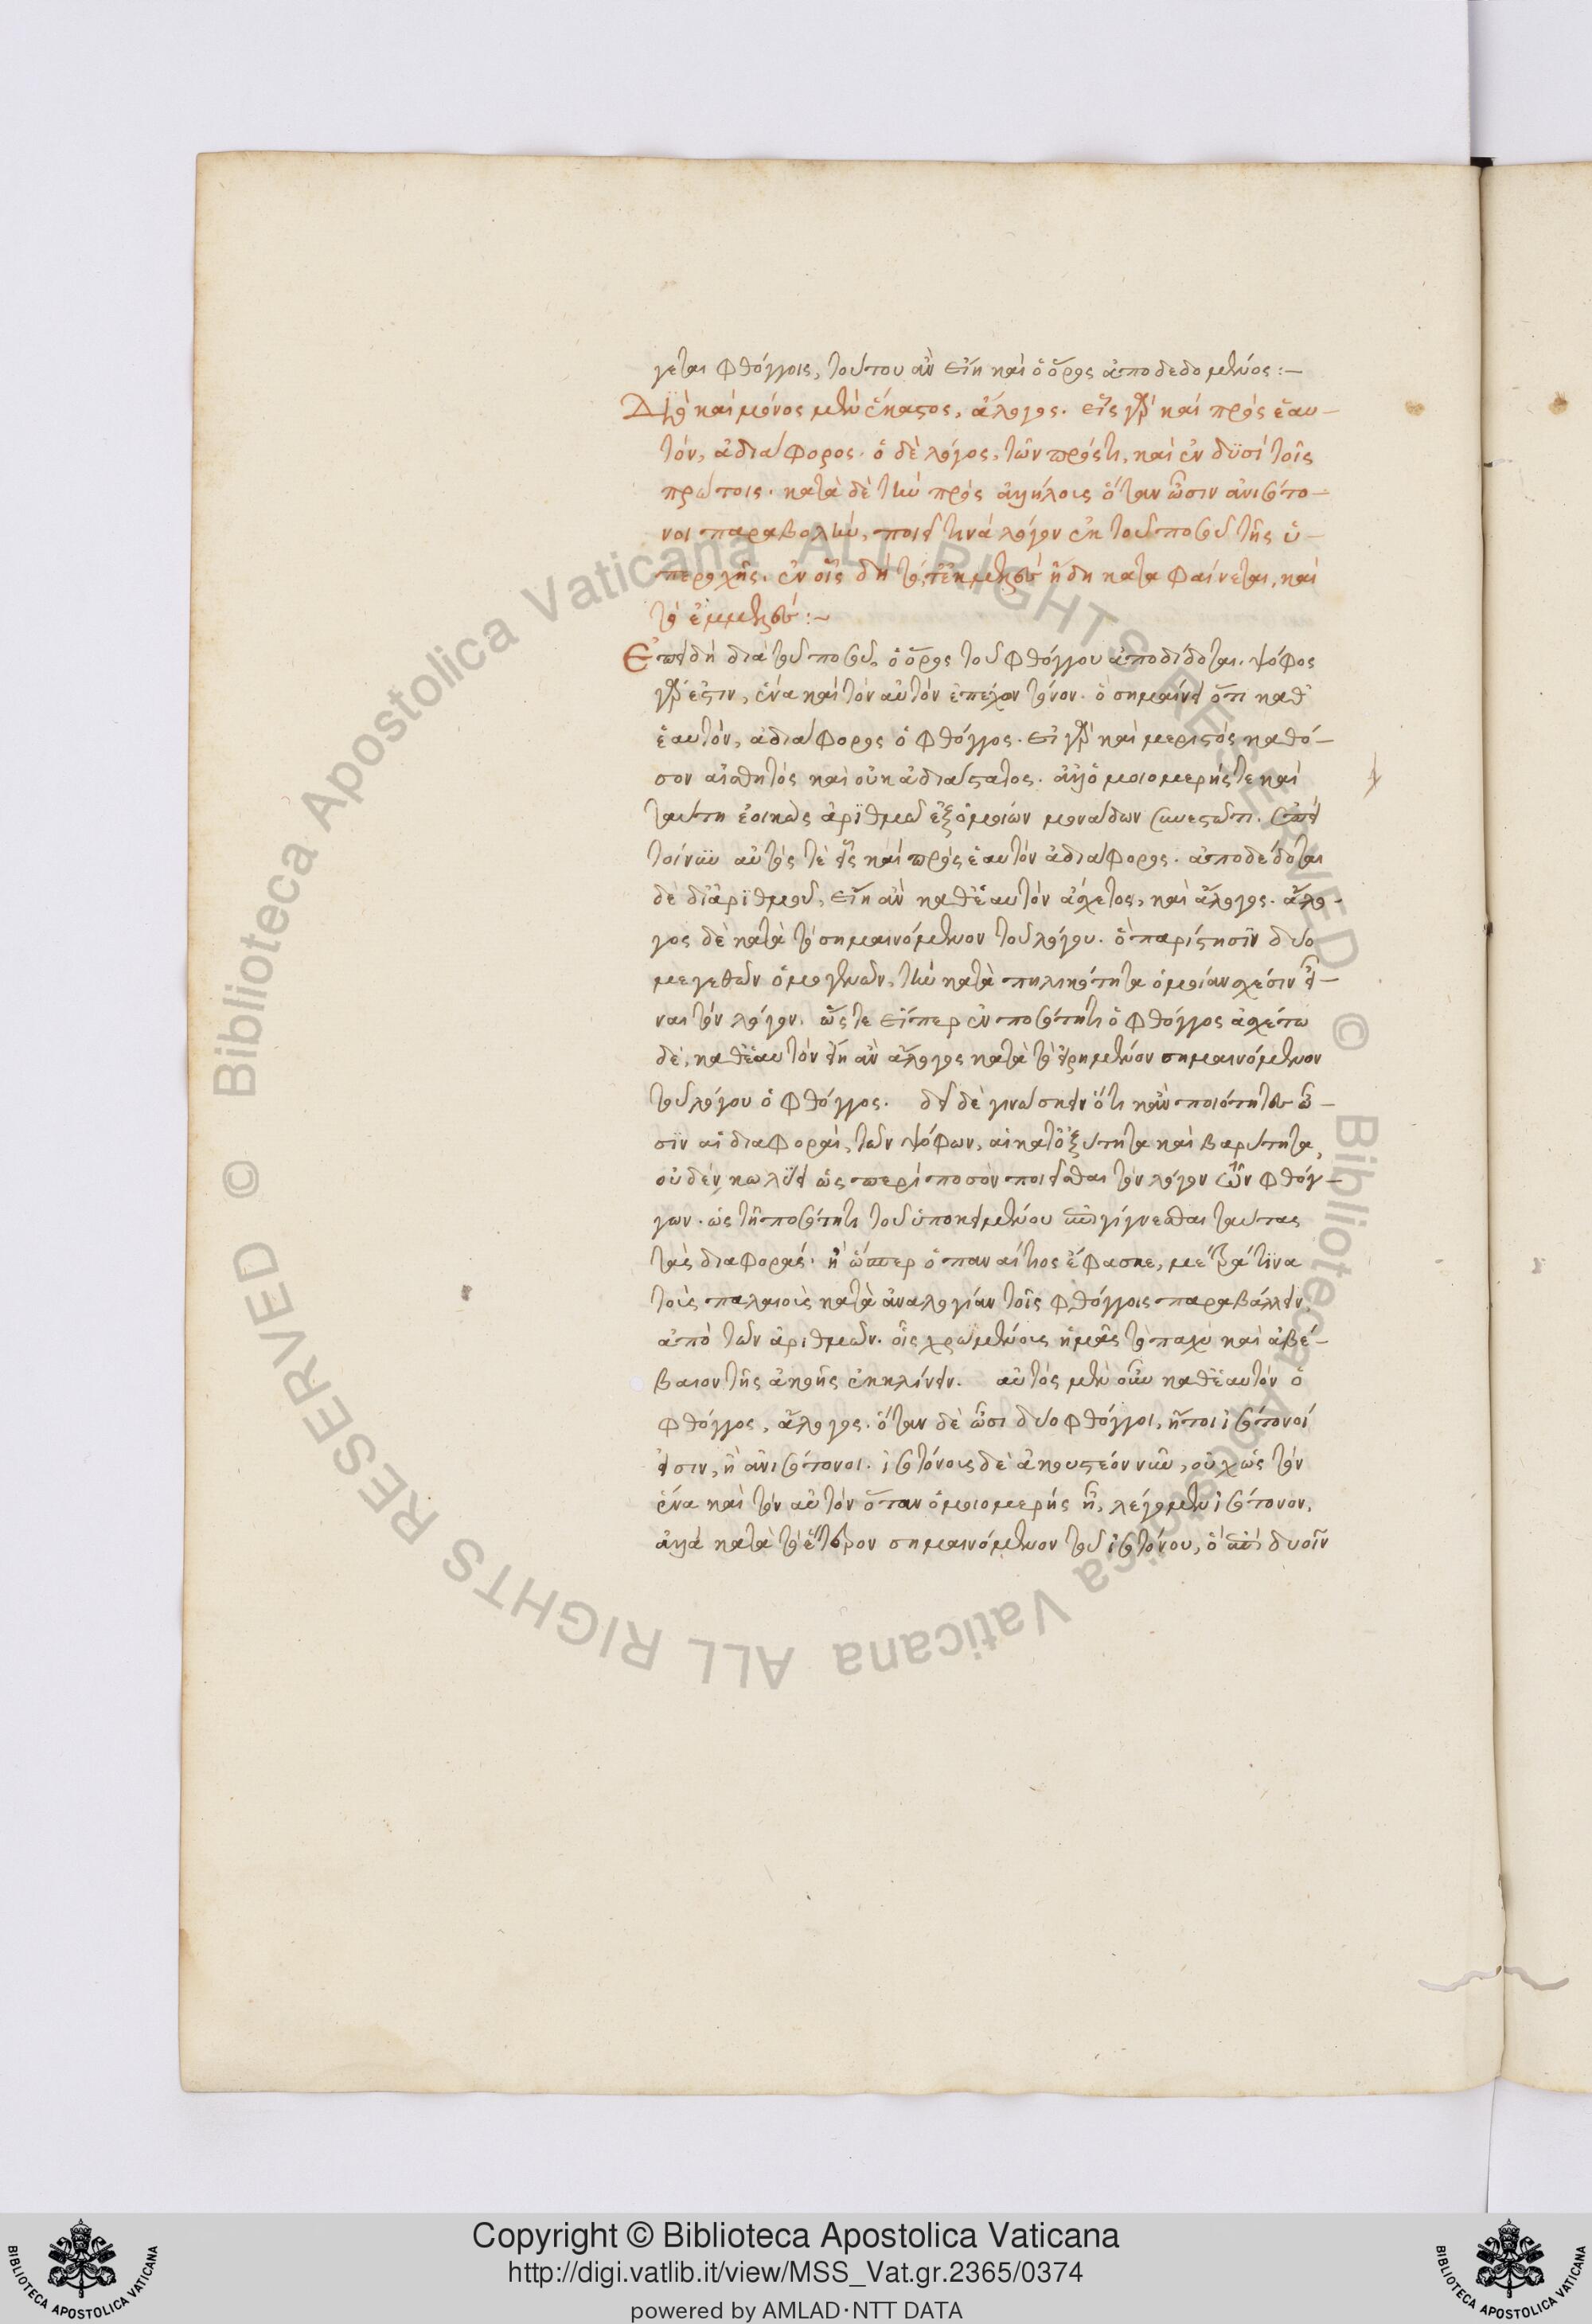 γεται φθόγγοις, τούτου ἂν εἴη καὶ ὁ ὅρος ἀποδεδομένος:—
Διὸ καὶ μόνος μὲν ἕκαστος, ἄλογος. εἷς γὰρ καὶ πρὸς ἑαυ-
τόν, ἀδιάφορος. ὁ δὲ λόγος, τῶν πρός τι, καὶ ἐν δϋσὶ τοῖς
πρώτοις. κατὰ δὲ τὴν πρὸς ἀλλήλους ὅταν ὦσιν ἀνισότο-
νοι παραβολήν, ποιεῖ τινὰ λόγον ἐκ τοῦ ποσοῦ τῆς ὑ-
περοχῆς. ἐν οἷς δὴ τό, τε ἐκμελὲς ἤδη καταφαίνεται, καὶ
τὸ ἐμμελές:~
Ἐπειδὴ διὰ τοῦ ποσοῦ, ὁ ὅρος τοῦ φθόγγου ἀποδίδοται. ψόφος
γάρ ἐστιν, ἕνα καὶ τὸν αὐτὸν ἐπέχον τόνον. ὃ σημαίνει ὅτι καθ'
ἑαυτόν, ἀδιάφορος ὁ φθόγγος. εἰ γὰρ καὶ μεριστὸς καθό-
σον αἰσθητὸς καὶ οὐκ ἀδιάστατος. ἀλλ' ὁμοιομερής τε καὶ
ταύτῃ ἐοικὼς ἀρϊθμῷ ἐξ ὁμοίων μονάδων συνεστῶτι. ἐπεὶ
τοίνυν αὐτός τε εἷς καὶ πρὸς ἑαυτὸν ἀδιάφορος. ἀποδέδοται
δὲ δι' ἀρϊθμοῦ, εἴη ἂν καθ' ἑαυτὸν ἄσχετος, καὶ ἄλογος. ἄλο-
γος δὲ κατὰ τὸ σημαινόμενον τοῦ λόγου. ὃ παρίστησϊν δύο
μεγεθῶν ὁμογενῶν, τὴν κατὰ πηλικότητα ὁμοίαν σχέσιν εἶ-
ναι τὸν λόγον. ὥστε εἴπερ ἐν ποσότητι ὁ φθόγγος ἀσχέτῳ
δέ, καθ' ἑαυτὸν εἴη ἂν ἄλογος κατὰ τὸ εἰρημένον σημαινόμενον
τοῦ λόγου ὁ φθόγγος. δεῖ δὲ γινώσκειν ὅτι κἂν ποιότητες ὦ-
σϊν αἱ διαφοραί, τῶν ψόφων, αἱ κατ' ὀξύτητα καὶ βαρύτητα,
οὐδὲν κωλύει ὡς περὶ ποσὸν ποιεῖσθαι τὸν λόγον τῶν φθόγ-
γων. ὡς τῇ ποσότητι τοῦ ὑποκειμένου ἐπιγίγνεσθαι ταύτας
τὰς διαφοράς. ἢ ὥσπερ ὁ παναίτιος ἔφασκε, μέτρα τϊνα
τοὺς παλαιοὺς κατὰ ἀναλογίαν τοῖς φθόγγοις παραβάλλειν.
ἀπὸ τῶν ἀριθμῶν. οἷς χρωμένοις ἡμᾶς τὸ παχὺ καὶ ἀβέ-
βαιον τῆς ἀκοῆς ἐκκλίνειν. αὐτὸς μὲν οὖν καθ' ἑαυτὸν ὁ
φθόγγος, ἄλογος. ὅταν δὲ ὦσι δύο φθόγγοι, ἤτοι ἰσότονοί
εἰσιν, ἢ ἀνισότονοι. ἰσοτόνους δὲ ἀκουστέον νῦν, οὐχ ὡς τὸν
ἕνα καὶ τὸν αὐτὸν ὅταν ὁμοιομερὴς ᾖ, λέγομεν ἰσότονον,
ἀλλὰ κατὰ τὸ ἕτερον σημαινόμενον τοῦ ἰσοτόνου, ὃ ἐπὶ δυοῖν
Copyright © Biblioteca Apostolica Vaticana
http://digi.vatlib.it/view/MSS_Vat.gr.2365/0374
powered by AMLAD·NTT DATA
BIBLIOTECA APOSTOLICA VATICANA
BIBLIOTECA APOSTOLICA VATICANA
© Biblioteca Apostolica Vaticana ALL RIGHTS RESERVED
© Biblioteca Apostolica Vaticana ALL RIGHTS RESERVED